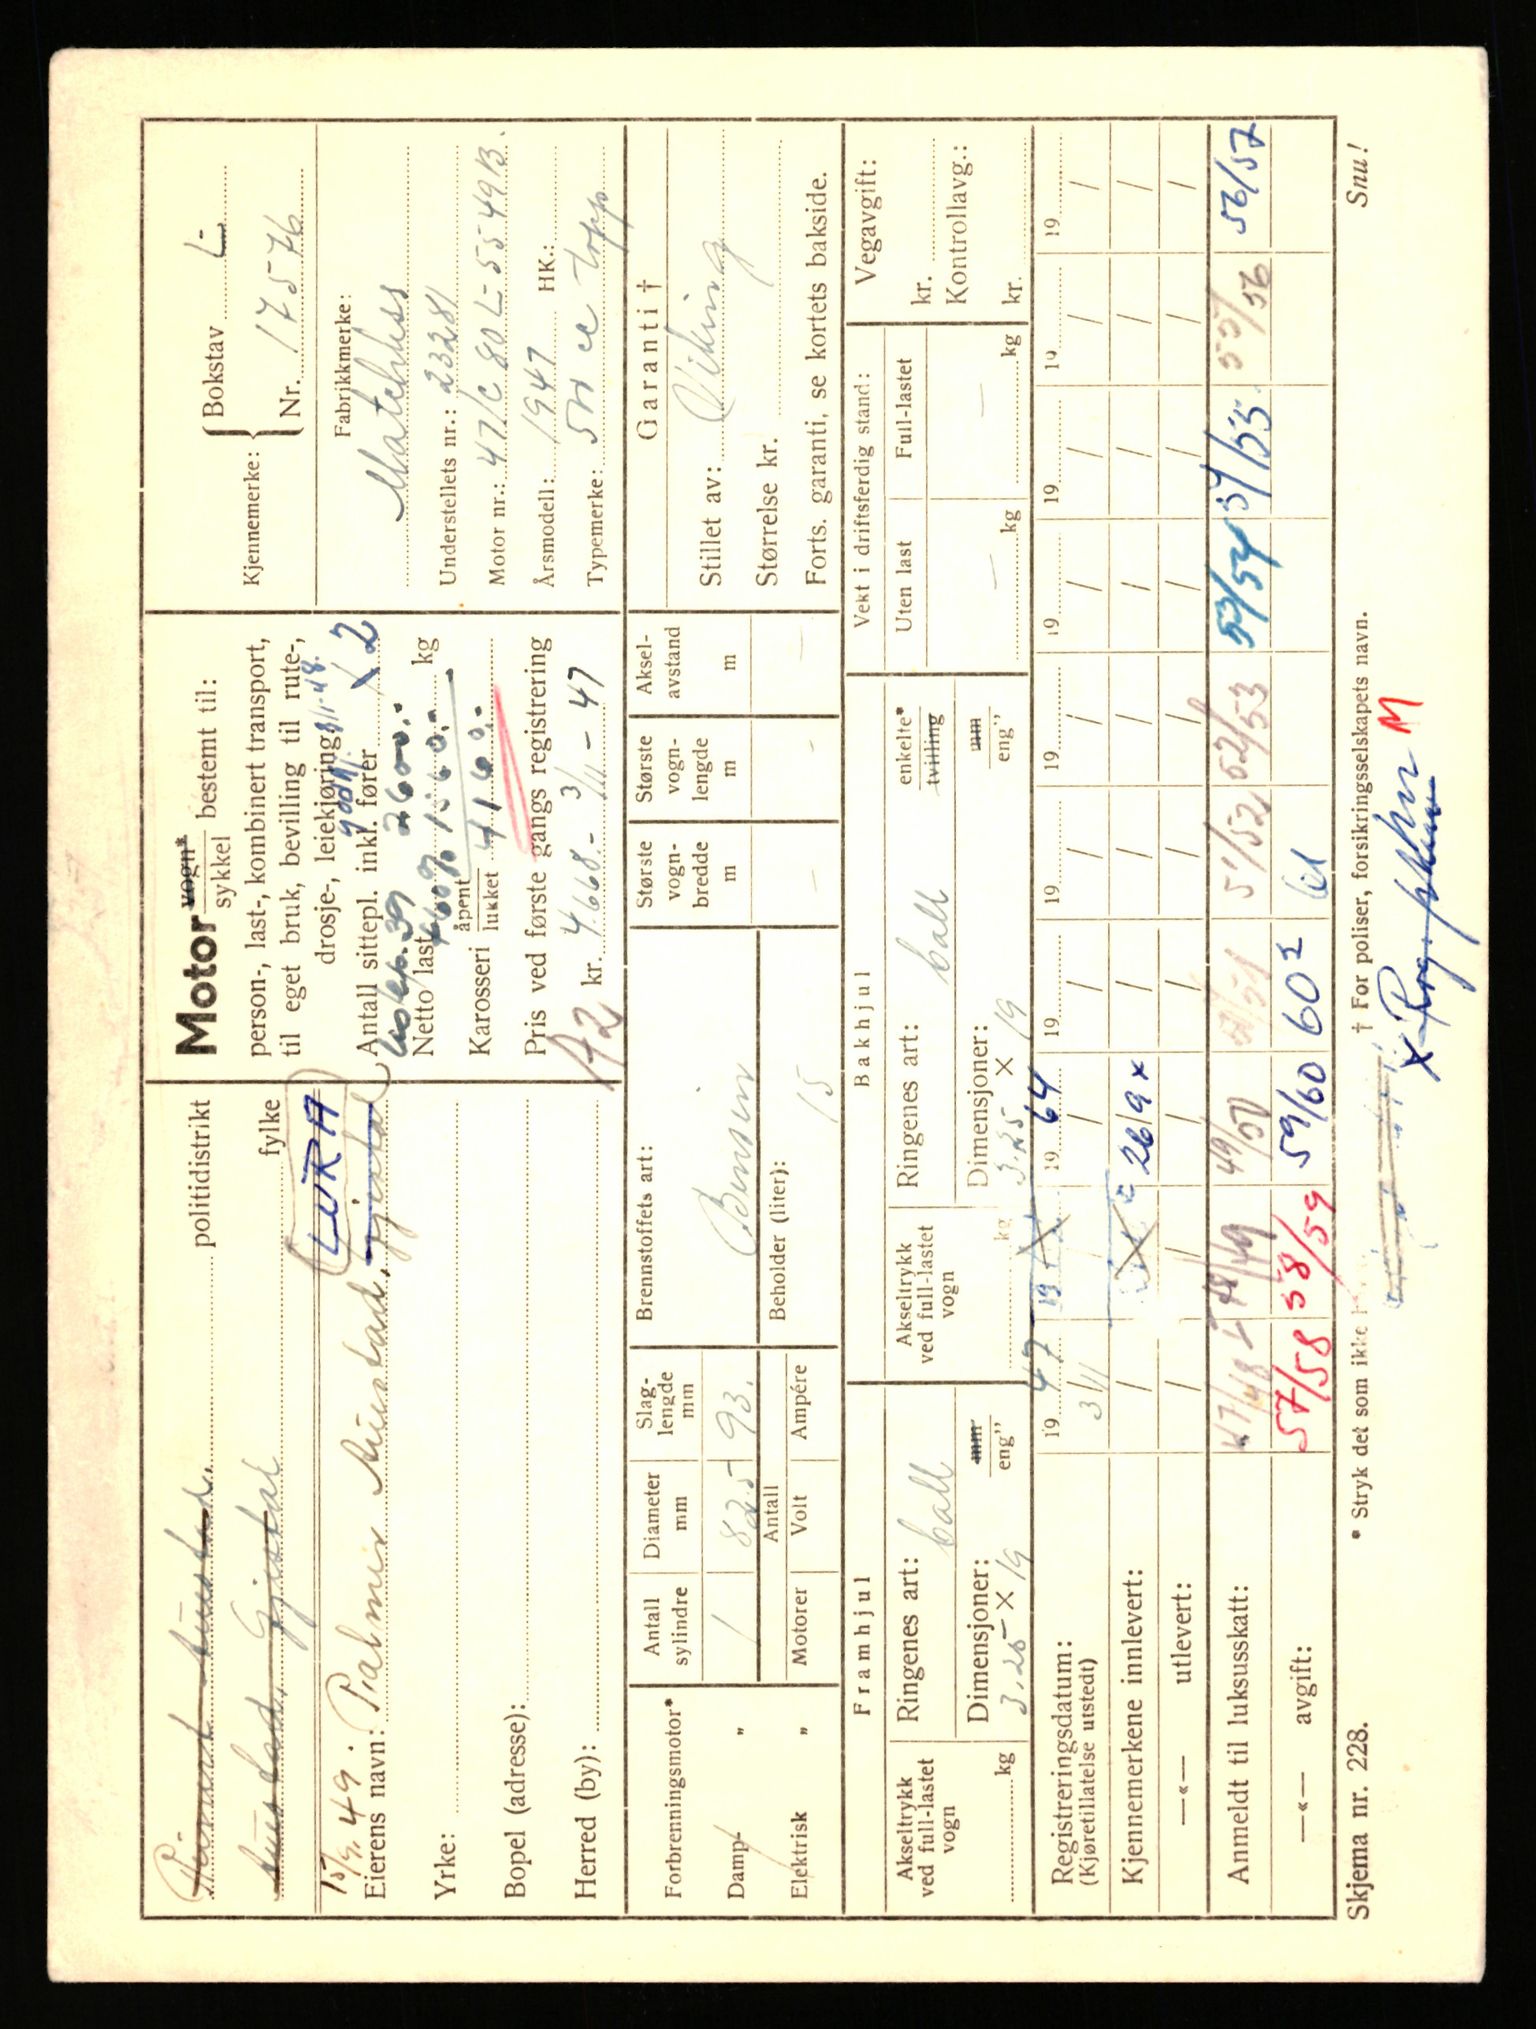 politidistrikt
fylke
LURA
15/9. 49.
Eierens navn: Palmer Aurstad,
Yrke:
Bopel (adresse):
Herred (by):
Motor vogn*
sykkel bestemt til:
person-, last-, kombinert transport,
til eget bruk, bevilling til rute-,
drosje-, leiekjøring
Antall sittepl. inkl. fører 2
Netto last kg
2600.-
60% 1560.-
Karosseri åpent
lukket 4160.-
Pris ved første gangs registrering
kr. 4.668.- 3/11 - 47
A2
Kjennemerke: { Bokstav L-
Nr. 17576
Fabrikkmerke:
Matchless
Understellets nr.: 23281
Motor nr.: 47/C 80 L-5549B.
Årsmodell: 1947 HK.:
Typemerke: topp
Forbrenningsmotor*
Damp- „
Elektrisk „
Antall sylindre
1
Diameter mm
82.5
Slag-lengde mm
93.
Antall
Motorer Volt Ampére
Brennstoffets art:
Bensin
Beholder (liter): 15
Største vogn-bredde m
Største vogn-lengde m
Aksel-avstand m
Garanti †
Stillet av: Viking
Størrelse kr.
Forts. garanti, se kortets bakside.
Framhjul
Akseltrykk ved full-lastet vogn
kg
Ringenes art: ball
Dimensjoner: mm
3.25 × 19 eng”
Bakhjul
Akseltrykk ved full-lastet vogn
kg
Ringenes art: ball
enkelte*
tvilling
Dimensjoner: mm
3.25 × 19 eng”
Vekt i driftsferdig stand:
Uten last Full-lastet
— —
kg kg
Vegavgift:
kr.
Kontrollavg.:
kr.
Registreringsdatum: 19 47 19 19 64 19 19 19 19 19 19 19
(Kjøretillatelse utstedt) 3/11
Kjennemerkene innlevert: 26/9 x
—«— utlevert:
Anmeldt til luksusskatt: 47/48 48/49 49/50 51/52 52/53 53/54 54/55 55/56 56/57
—«— avgift: 57/58 58/59 59/60 60
Skjema nr. 228.
* Stryk det som ikke
† For poliser, forsikringsselskapets navn.
Snu!
M